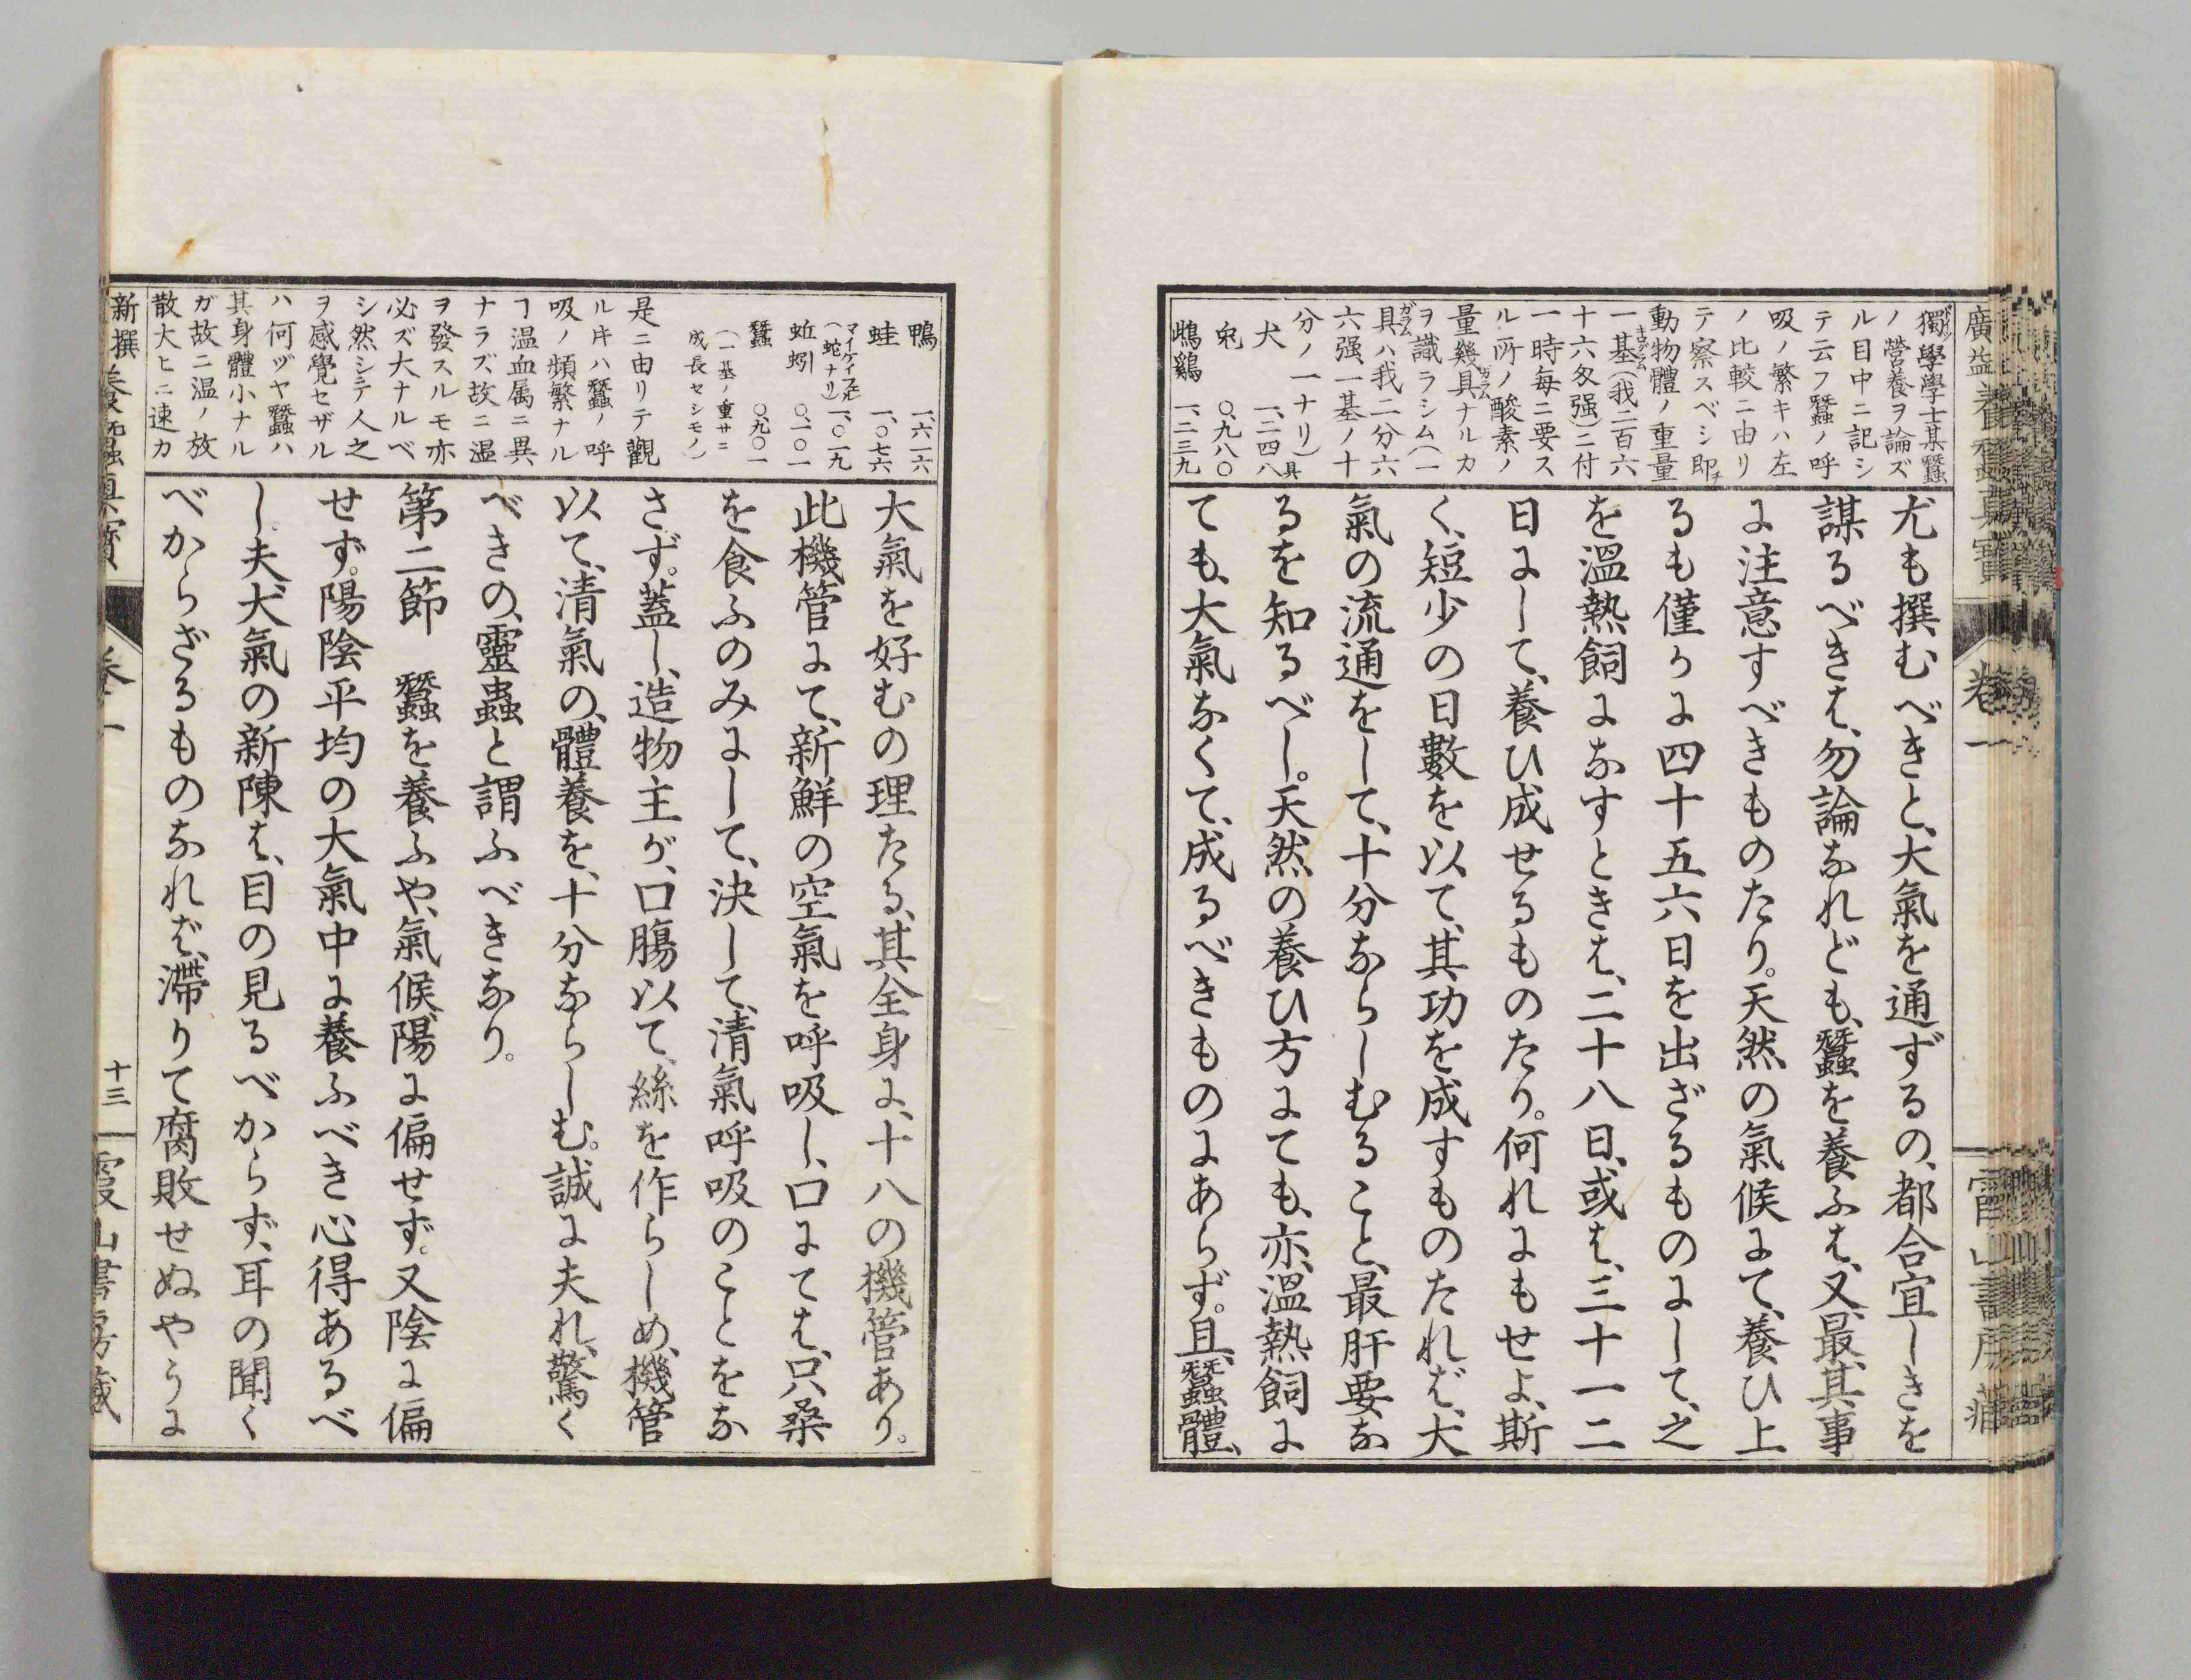 獨學學士某蠶
ノ營養ヲ論ズ
ル目中ニ記シ
テ云フ蠶ノ呼
吸ノ繁キハ左
ノ比較ニ由リ
テ察スベシ即チ
動物體ノ重量
一基(我二百六
十六匁强)ニ付
一時毎ニ要ス
ル所ノ酸素ノ
量幾具ナルカ
ヲ識ラシム(一
具ハ我二分六
六强一基ノ十
分ノ一ナリ)具
犬 一、二四八
兎 〇、九八〇
鴟鷄 一、二三九
尤も撰むべきと、大氣を通ずるの、都合宜しきを
謀るべきは、勿論なれども、蠶を養ふは、又、最、其事
に注意すべきものたり。天然の氣候にて、養ひ上
るも僅かに四十五六日を出ざるものにして、之
を溫熱飼になすときは、二十八日、或は、三十一二
日にして、養ひ成せるものたり。何れにもせよ、斯
く、短少の日數を以て、其功を成すものたれば、大
氣の流通をして、十分ならしむること、最肝要な
るを知るべし。天然の養ひ方にても、亦、溫熱飼に
ても、大氣なくて、成るべきものにあらず。且、蠶體、
廣益養蠶眞寶 卷一
鴨 一、六一六
蛙 一、〇七六
(蛇ナリ) 一、〇一九
蚯蚓 〇、一〇一
蠶 〇、九〇一
(一基ノ重サニ
成長セシモノ)
是ニ由リテ觀
ル片ハ蠶ノ呼
吸ノ頻繁ナル
ヿ温血属ニ異
ナラズ故ニ温
ヲ發スルモ亦
必ズ大ナルベ
シ然シテ人之
ヲ感覺セザル
ハ何ヅヤ蠶ハ
其身體小ナル
ガ故ニ温ノ放
散大ヒニ速カ
大氣を好むの理たる、其全身に、十八の機管あり。
此機管にて、新鮮の空氣を呼吸し、口にては、只、桑
を食ふのみにして、決して、清氣呼吸のことをな
さず。蓋し、造物主が、口腸以て、絲を作らしめ、機管
以て、清氣の、體養を、十分ならしむ。誠に夫れ、驚く
べきの、靈蟲と謂ふべきなり。
第二節 蠶を養ふや、氣候、陽に偏せず。又陰に偏
せず。陽陰平均の大氣中に養ふべき心得あるべ
し、夫、大氣の新陳は、目の見るべからず、耳の聞く
べからざるものなれば、滯りて腐敗せぬやうに
新撰養蠶眞寶 卷一 十三 霞山書房藏